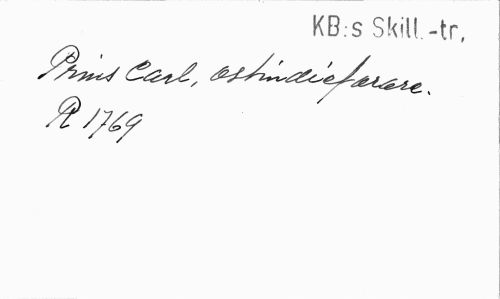 KB:s Skill.-tr,
Prins Carl, ostindiefarare.
R 1769